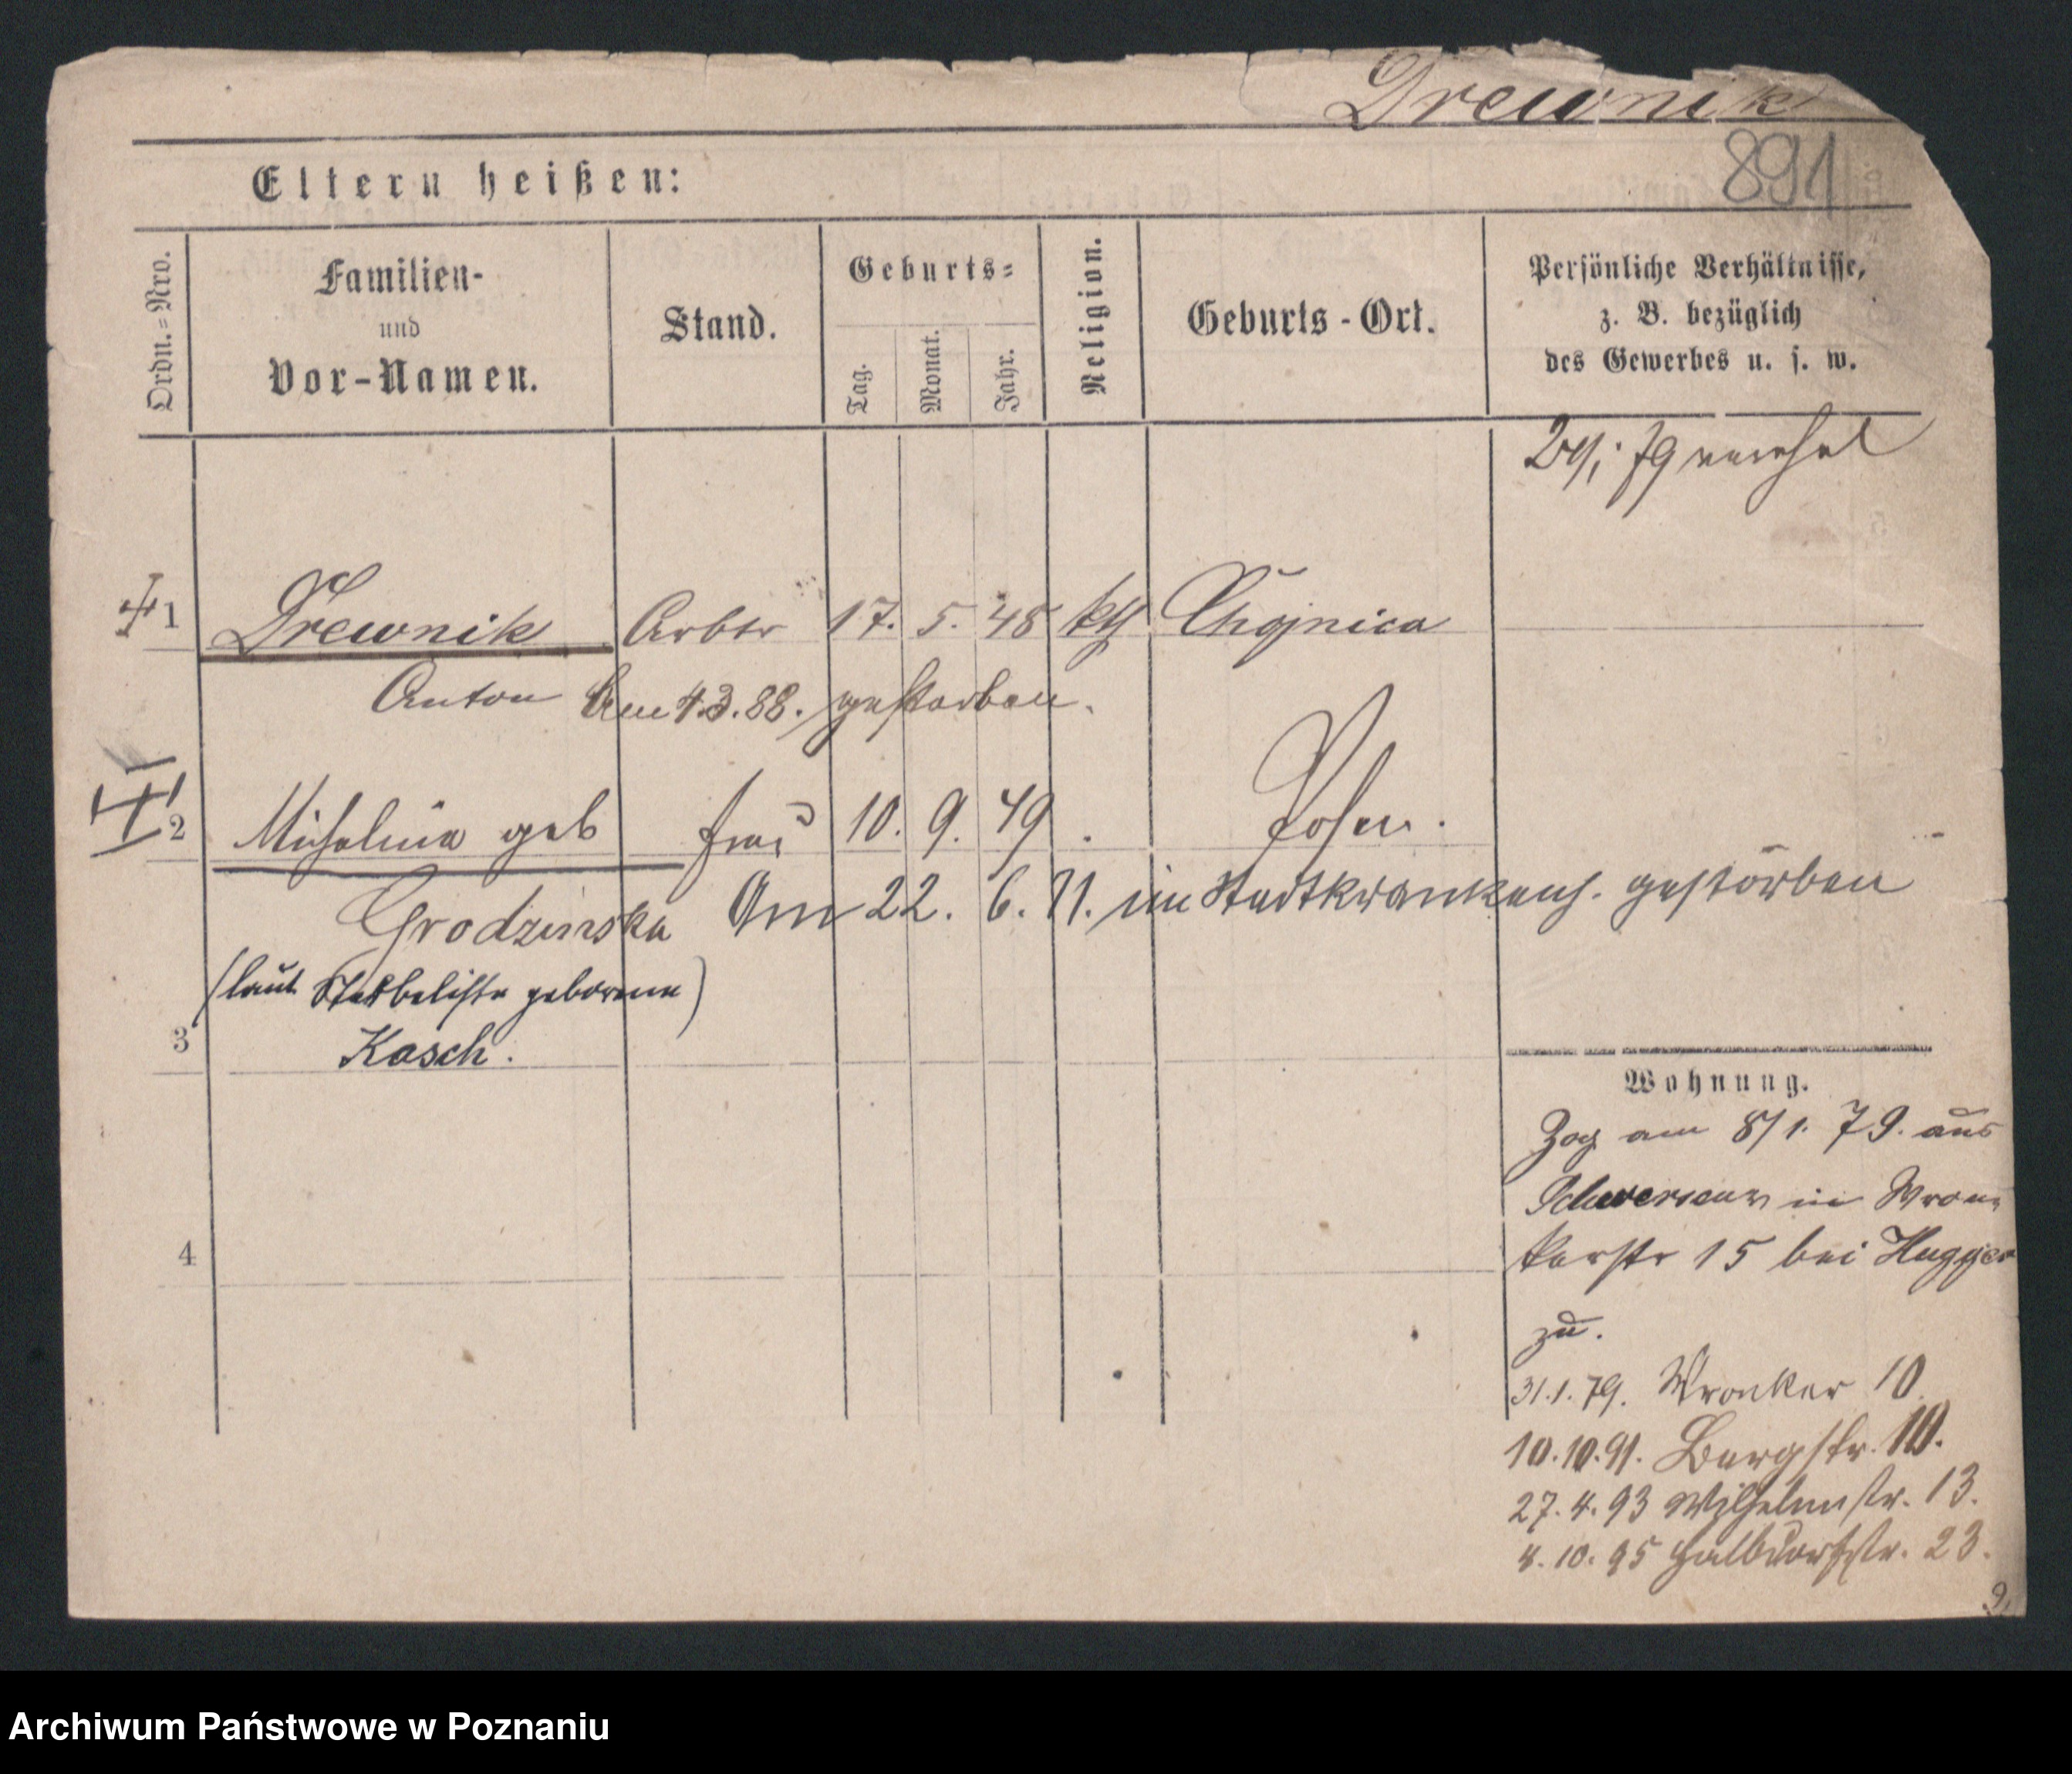 Drewnik
891
Eltern heißen:
Ordn.=Nro.
Familien-
und
Vor-Namen.
Stand.
Geburts=
Tag.
Monat.
Jahr.
Religion.
Geburts-Ort.
Persönliche Verhältnisse,
z. B. bezüglich
des Gewerbes u. s. w.
79
1 Drewnik Arbtr 17. 5. 48 kth Chojnica
Anton Am 4.3.88. gestorben.
2 Michalina geb Frau 10. 9. 49 Posen.
Grodzinska Am 22. 6. 11. im Stadtkrankenh. gestorben
(laut Sterbeliste geborene)
3 Kasch.
4
Wohnung.
Zog am 8/1. 79. aus
Schwersenz in Wron-
kerstr 15 bei Hugger
zu.
31.1.79. Wronker 10
10.10.91. Bergstr. 10.
27.4.93 Wilhelmstr. 13.
4.10.95 Halbdorfstr. 23.
Archiwum Państwowe w Poznaniu